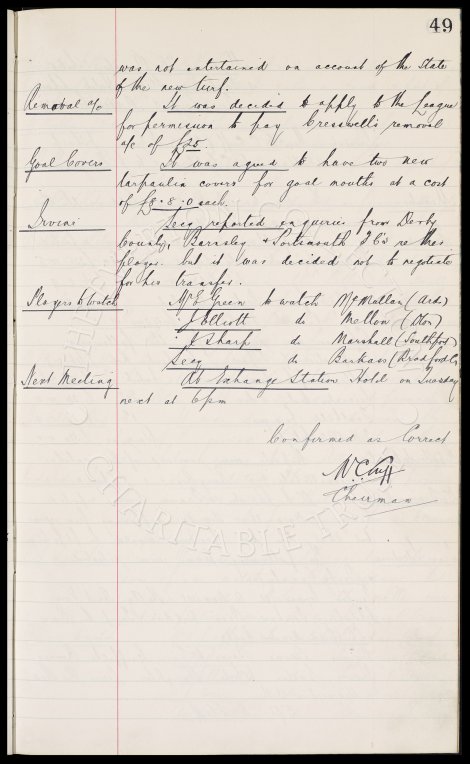 49
was not entertained on account of the State
of the new turf.
Removal a/c It was decided to apply to the League
for permission to pay Cresswell's removal
a/c of £20
Goal Covers It was agreed to have two new
tarpaulin covers for goal mouths at a cost
of £8.8.0 each.
Irvine Secy reported enquiries from Derby
County, Barnsley & Portsmouth F.C's re this
player but it was decided not to negotiate
for his transfer.
Players to Watch Mr E Green to watch McMullan (Ards)
" J Elliott do Mellon (Don)
" J Sharp do Marshall (Southport)
Secy do Barkas (Bradford C)
Next Meeting At Exchange Station Hotel on Tuesday
next at 6pm
Confirmed as Correct
W.C. Cuff
Chairman
CHARITABLE